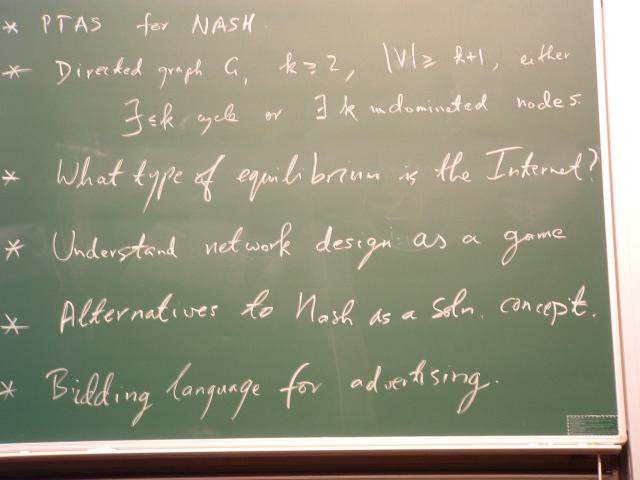 * PTAS for NASH.
* Directed graph G, k ≥ 2, |V| ≥ k+1, either
∃ ≤k cycle or ∃ k undominated nodes.
* What type of equilibrium is the Internet?
* Understand network design as a game
* Alternatives to Nash as a Soln. concept.
* Bidding language for advertising.